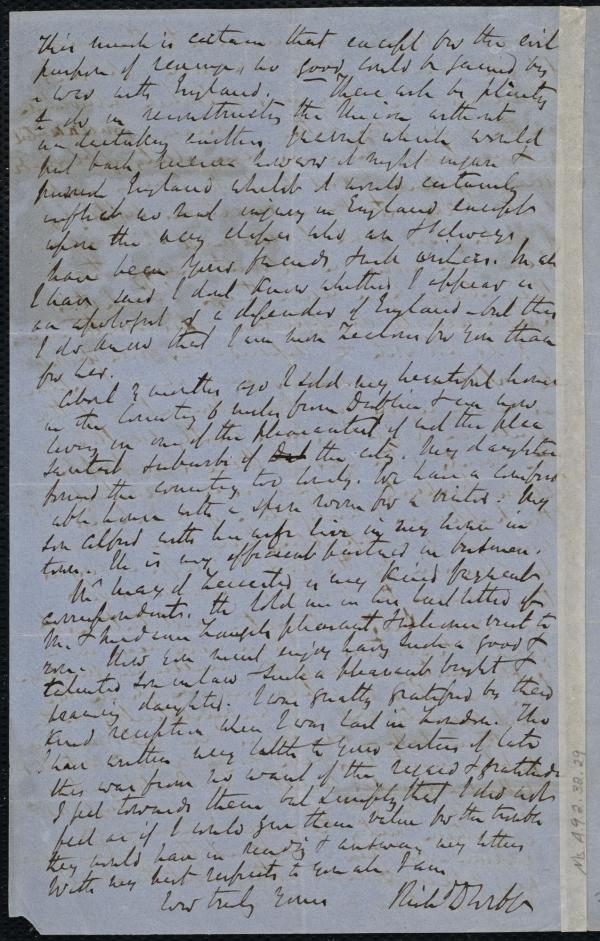 This much is certain that except for the evil
purpose of revenge, no good could be gained by
a war with England. There will be plenty
to do in reconstructing the Union without
undertaking another quarrel which would
put back America however it might injure &
punish England whilst it would certainly
inflict no real injury in England except
upon the very classes who are & always
have been your friends & well wishers. In all
I have said I dont know whether I appear as
an apologist or a defender of England – but this
I do know that I am more zealous for you than
for her.
About 3 months ago I sold my beautiful house
in the Country 6 miles from Dublin & am now
living in one of the pleasantest of all the plea
santest suburbs of the city. My daughters
found the country too lonely. We have a comfort
able house with a spare room for a visitor. My
son Alfred with his wife live in my house in
town. He is my efficient partner in business.
Mr May of Leicester is my kind frequent
correspondent. He told me in his last letter of
Mr & Madame Laugel's pleasant & welcome visit to
him. How you must enjoy having such a good &
talented son in law & such a pleasant bright &
daughter. I was greatly gratified by their
kind reception when I was last in London. Tho
I have written very little to your sisters of late
this was from no want of the regard & gratitude
I feel towards them but simply that I did not
feel as if I could give them value for the trouble
they would have in reading & answering my letters
With my best respects to you all I am
Yours truly
Richd D Webb
Ms. A.9.2.32.29